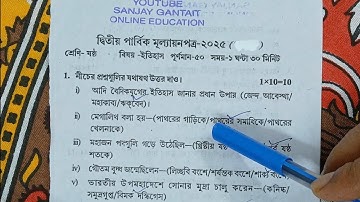 YOUTUBE
SANJAY GANTAIT
ONLINE EDUCATION
দ্বিতীয় পার্বিক মূল্যায়নপত্র-২০২৫ (
শ্রেণি- ষষ্ঠ বিষয় -ইতিহাস পূর্ণমান-৫০ সময়-১ ঘণ্টা ৩০ মিনিট
1. নীচের প্রশ্নগুলির যথাযথ উত্তর দাও। 1×10=10
i) আদি বৈদিকযুগের ইতিহাস জানার প্রধান উপায় (জেন্দ আবেস্তা/
মহাকাব্য/ঋকবেদ)।
ii) মেগালিথ বলা হয়—(পাথরের গাড়িকে/পাথরের সমাধিকে/পাথরের
খেলনাকে)
iii) মহাজন পদগুলি গড়ে উঠেছিল—(খ্রিস্টীয় ষষ্ঠ ষষ্ঠ
শতকে)
iv) গৌতম বুদ্ধ জন্মেছিলেন—(লিচ্ছবি বংশে/হর্যঙ্ক বংশে/শাক্য বংশে)
v) ভারতীয় উপমহাদেশে সোনার মুদ্রা চালু করেন—(কনিষ্ক/
সমুদ্রগুপ্ত/বিমক দফিসেস)